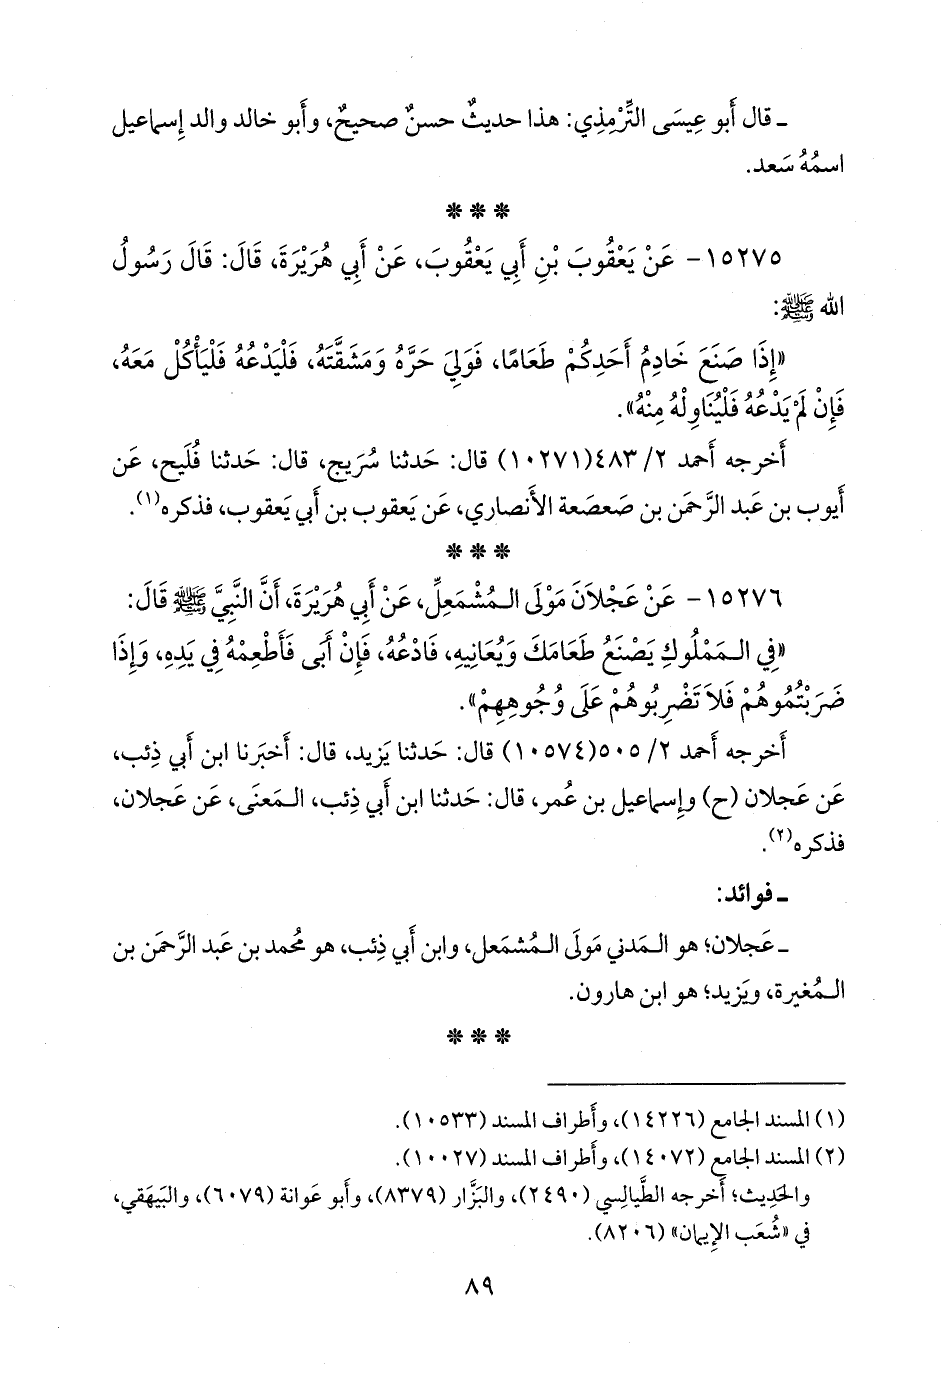 ـ قال أَبو عِيسَى التِّرْمِذِي: هذا حديثٌ حسنٌ صحيحٌ، وأَبو خالد والد إِسماعيل
اسمُهُ سَعد.
* * *
١٥٢٧٥- عَنْ يَعْقُوبَ بْنِ أَبِي يَعْقُوبَ، عَنْ أَبِي هُرَيْرَةَ، قَالَ: قَالَ رَسُولُ
الله ﷺ:
«إِذَا صَنَعَ خَادِمُ أَحَدِكُمْ طَعَامًا، فَوَلِيَ حَرَّهُ وَمَشَقَّتَهُ، فَلْيَدْعُهُ فَلْيَأْكُلْ مَعَهُ،
فَإِنْ لَمْ يَدْعُهُ فَلْيُنَاوِلْهُ مِنْهُ».
أَخرجه أَحمد ٢/ ٤٨٣(١٠٢٧١) قال: حَدثنا سُرَيج، قال: حَدثنا فُلَيح، عَن
أَيوب بن عَبد الرَّحمَن بن صَعصَعة الأَنصاري، عَن يَعقوب بن أَبي يَعقوب، فذكره(١).
* * *
١٥٢٧٦- عَنْ عَجْلَانَ مَوْلَى الـمُشْمَعِلِّ، عَنْ أَبِي هُرَيْرَةَ، أَنَّ النَّبِيَّ ﷺ قَالَ:
«فِي الـمَمْلُوكِ يَصْنَعُ طَعَامَكَ وَيُعَانِيهِ، فَادْعُهُ، فَإِنْ أَبَى فَأَطْعِمْهُ فِي يَدِهِ، وَإِذَا
ضَرَبْتُمُوهُمْ فَلَا تَضْرِبُوهُمْ عَلَى وُجُوهِهِمْ».
أَخرجه أَحمد ٢/ ٥٠٥(١٠٥٧٤) قال: حَدثنا يَزيد، قال: أَخبَرنا ابن أَبي ذِئب،
عَن عَجلان (ح) وإِسماعيل بن عُمر، قال: حَدثنا ابن أَبي ذِئب، الـمَعنَى، عَن عَجلان،
فذكره(٢).
ـ فوائد:
ـ عَجلان؛ هو الـمَدني مَولَى الـمُشمَعل، وابن أَبي ذِئب، هو مُحمد بن عَبد الرَّحمَن بن
الـمُغيرة، ويَزيد؛ هو ابن هارون.
* * *
(١) المسند الجامع (١٤٢٢٦)، وأَطراف المسند (١٠٥٣٣).
(٢) المسند الجامع (١٤٠٧٢)، وأَطراف المسند (١٠٠٢٧).
والحَدِيث؛ أَخرجه الطَّيالِسي (٢٤٩٠)، والبَزَّار (٨٣٧٩)، وأَبو عَوانة (٦٠٧٩)، والبَيهَقي،
في «شُعَب الإِيمان» (٨٢٠٦).
٨٩